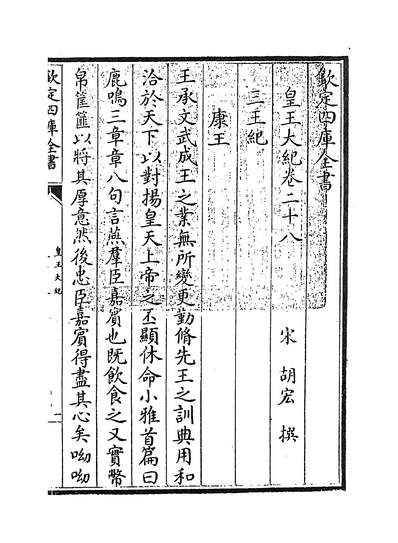 欽定四庫全書
皇王大紀卷二十八
宋 胡宏 撰
三王紀
康王
王承文武成王之業無所變更勤脩先王之訓典用和
洽於天下以對揚皇天上帝之丕顯休命小雅首篇曰
鹿鳴三章章八句言燕羣臣嘉賓也既飲食之又實幣
帛筐篚以將其厚意然後忠臣嘉賓得盡其心矣呦呦
欽定四庫全書
皇王大紀